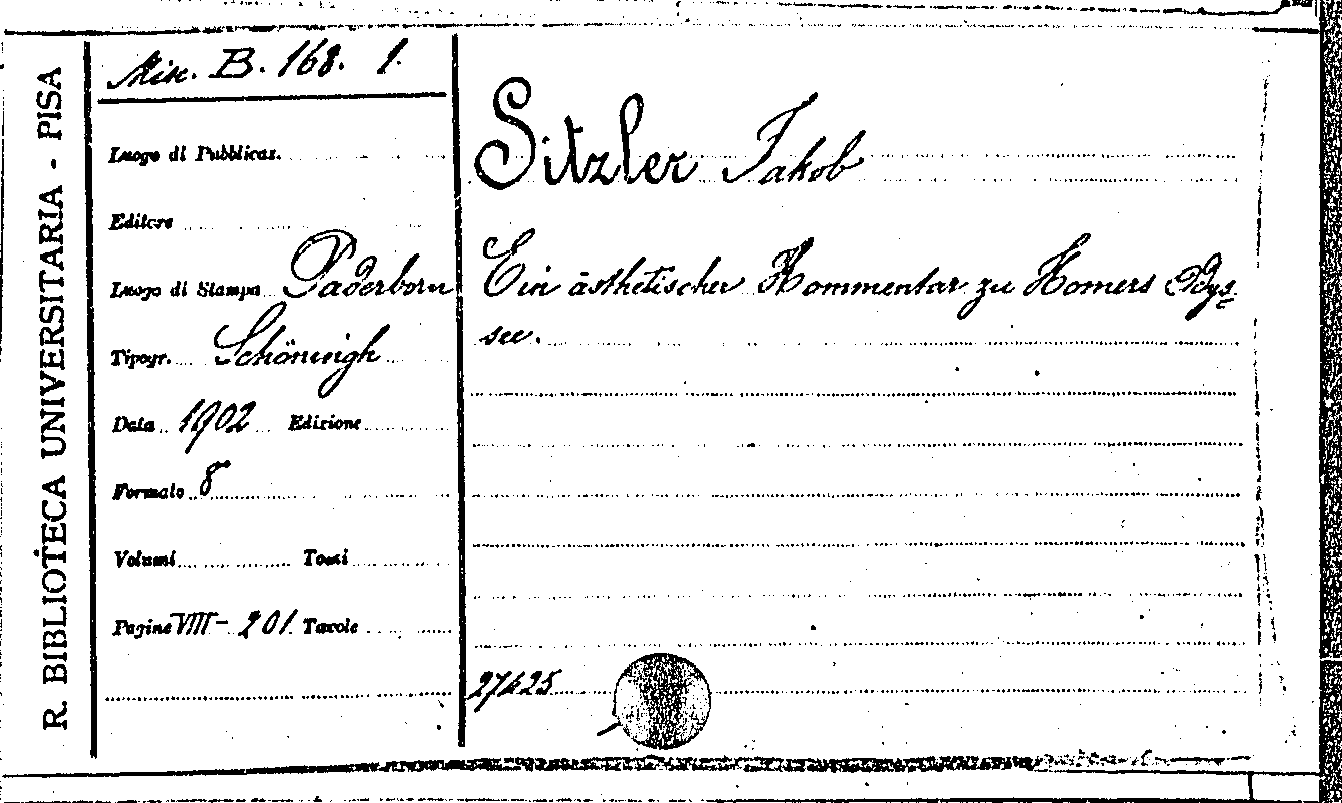 R. BIBLIOTECA UNIVERSITARIA - PISA
Misc. B. 168. 1.
Luogo di Pubblicaz.
Editore
Luogo di Stampa Paderborn
Tipogr. Schöningh
Data 1902 Edizione
Formato 8
Volumi Tomi
Pagine VIII - 201. Tavole
Sitzler Jakob
Ein ästhetischer Kommentar zu Homers Odys=
see.
27425